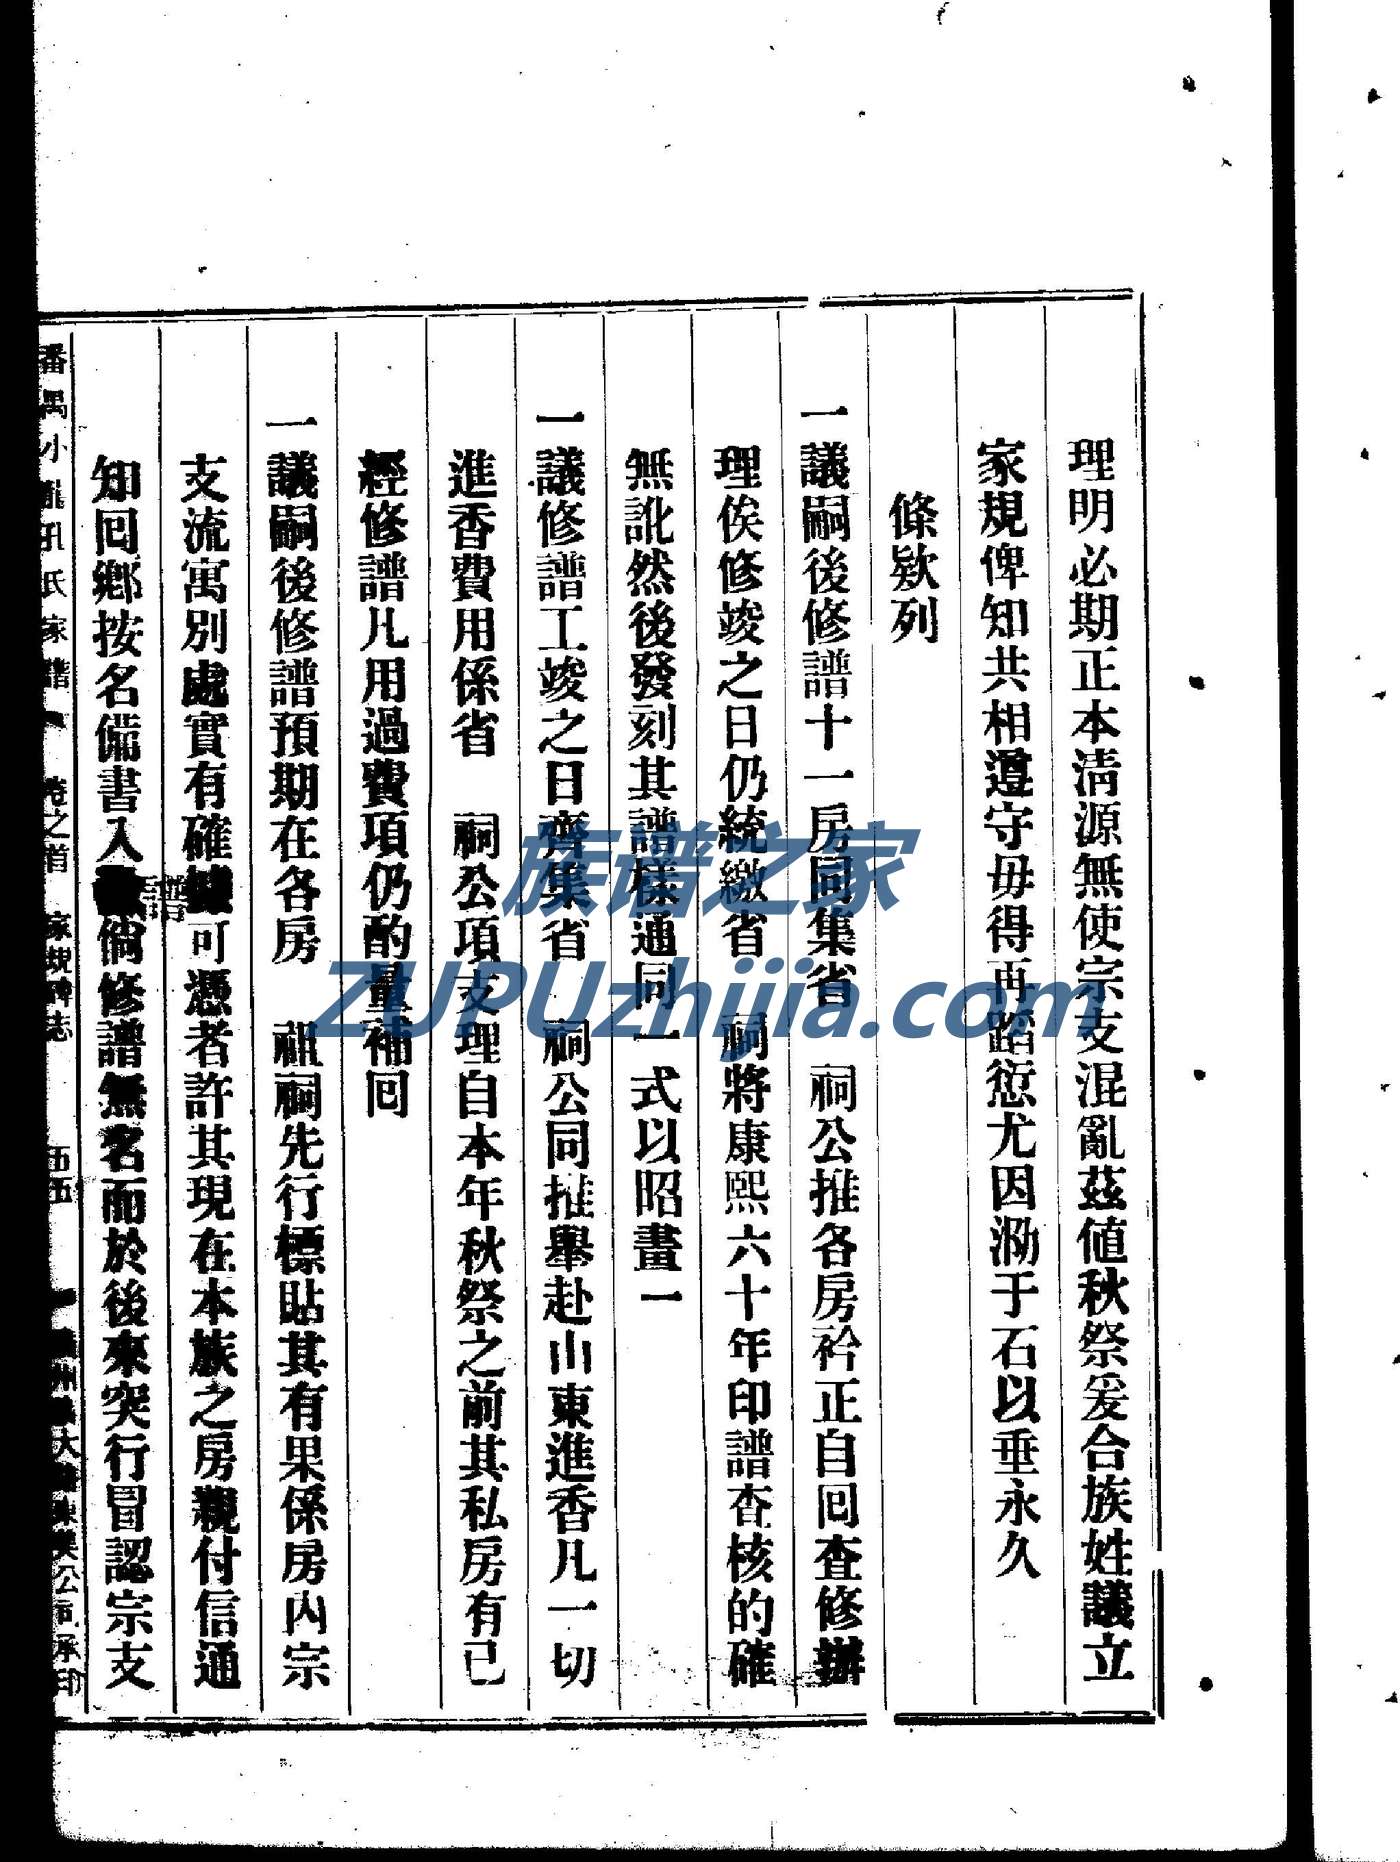 理明必期正本清源無使宗支混亂茲値秋祭爰合族姓議立
家規俾知共相遵守毋得再蹈愆尤因泐于石以垂永久
條欵列
一議嗣後修譜十一房同集省　祠公推各房衿正自囘查修辦
理俟修竣之日仍統繳省　祠將康熙六十年印譜查核的確
無訛然後發刻其譜樣通同一式以昭畫一
一議修譜工竣之日齊集省　祠公同推舉赴山東進香凡一切
進香費用係省　祠公項支理自本年秋祭之前其私房有已
經修譜凡用過費項仍酌量補囘
一議嗣後修譜預期在各房　祖祠先行標貼其有果係房內宗
支流寓別處實有確據可憑者許其現在本族之房親付信通
知囘鄉按名備書入譜倘修譜無名而於後來突行冒認宗支
番禺小龍孔氏家譜　卷之首　家規碑志　五五
族谱之家
ZUPUzhijia.com